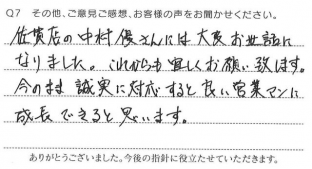 Q7 その他、ご意見ご感想、お客様の声をお聞かせください。
佐賀店の中村優さんには大変お世話に
なりました。これからも宜しくお願い致します。
今のまま誠実に対応すると良い営業マンに
成長できると思います。
ありがとうございました。今後の指針に役立たせていただきます。